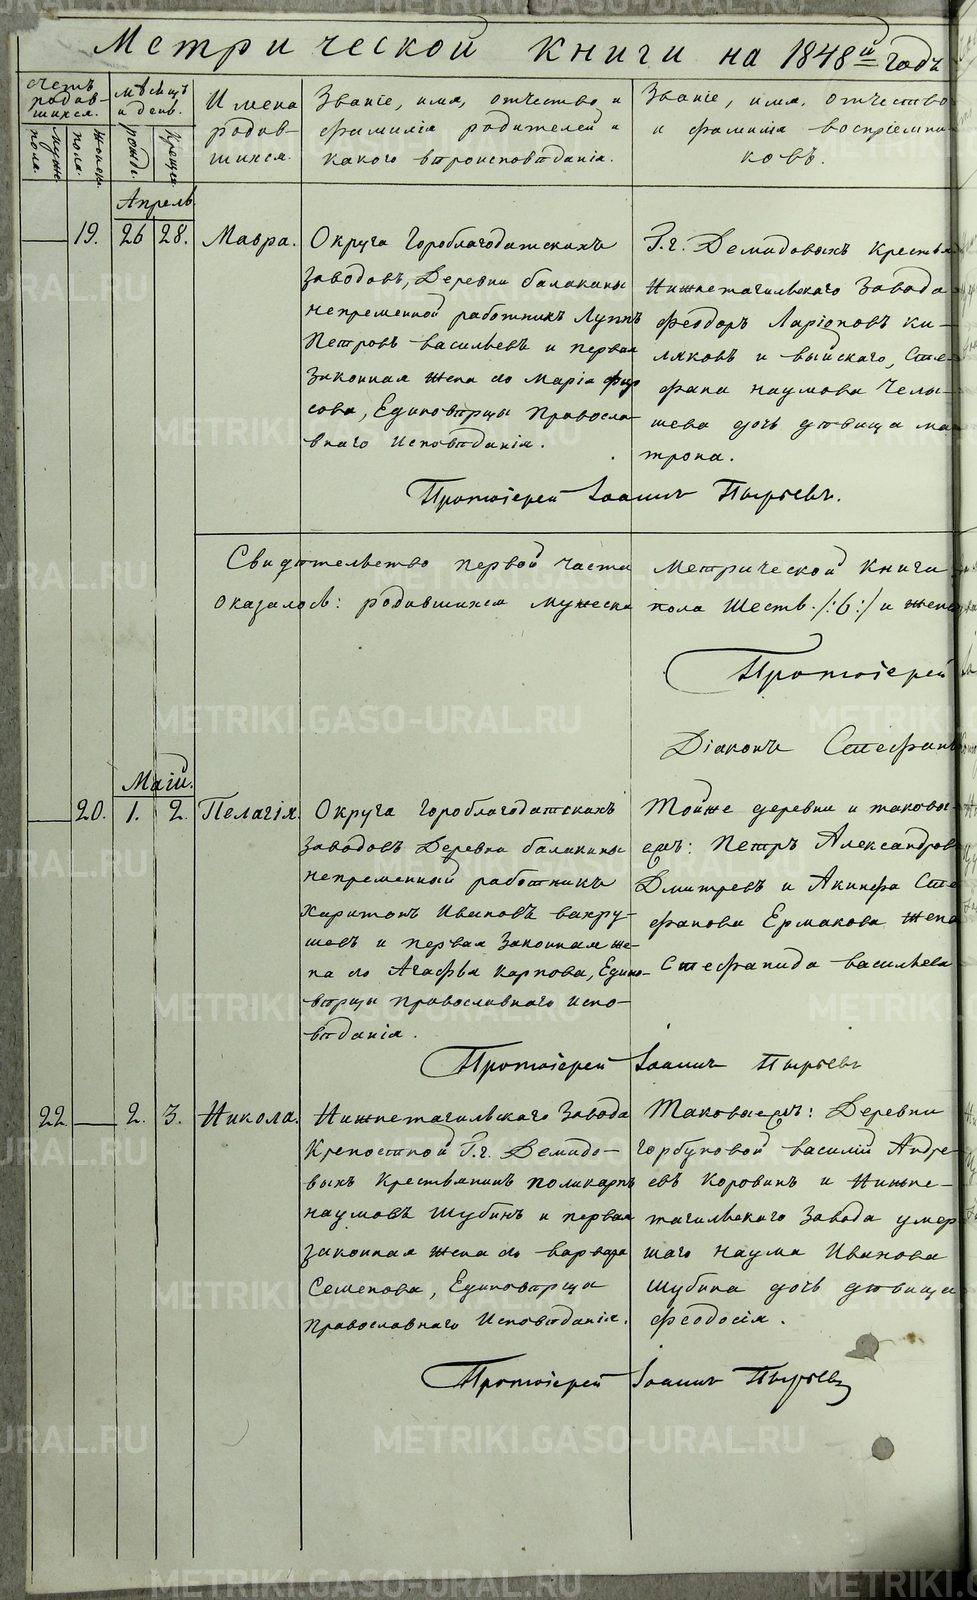 Метрической книги на 1848й годъ
Счетъ родившихся.
муж. пола.
женск. пола.
мѣсяцъ и день.
рожд.
крещ.
Имена родившихся.
Званіе, имя, отчество и
фамилія родителей и
какого вѣроисповѣданія.
Званіе, имя, отчество
и фамилія воспріемни-
ковъ.
Апрель.
19. 26 28. Мавра.
Округа Гороблагодатскихъ
заводовъ, Деревни балакины
непременной работникъ Луппъ
Петровъ васильевъ и первая
законная жена его Марія Фир
сова, Единовѣрцы Правосла
внаго Исповѣданія.
Г.г. Демидовыхъ крестья
Нижнетагильскаго Завода
Феодоръ Ларіоновъ ки-
ляковъ и выйскаго, Сте-
фана наумова Челы-
шева дочь дѣвица ма
трона.
Протоіерей Іоаннъ Пырьевъ.
Свидѣтельство первой части Метрической книги
оказалось: родившихся мужеска пола Шесть /:6:/ и женс
Протоіерей
Діаконъ Стефанъ
Маій.
20. 1. 2. Пелагія.
Округа Гороблагодатскихъ
заводовъ Деревни балакины
непременный работникъ
харитонъ Ивановъ вахру-
шевъ и первая законная же-
на его Агафья карпова, Едино-
вѣрцы православнаго испо-
вѣданія.
Тойже деревни и таковы-
ежъ: Петръ Александров
Дмитревъ и Акинфа Сте
фанова Ермакова жена
Стефанида васильева
Протоіерей Іоаннъ Пырьевъ
22. 2. 3. Никола.
Нижнетагильскаго Завода
Крепостной Г.г. Демидо-
выхъ крестьянинъ поликарпъ
наумовъ шубинъ и первая
законная жена его варвара
Семенова, Единовѣрцы
православнаго Исповѣданія.
Таковыежъ: Деревни
горбуновой василій Андре-
евъ коровинъ и Нижне-
тагильскаго Завода умер
шаго наума Иванова
шубина дочь дѣвица
феодосія.
Протоіерей Іоаннъ Пырьевъ
METRIKI.GASO-URAL.RU